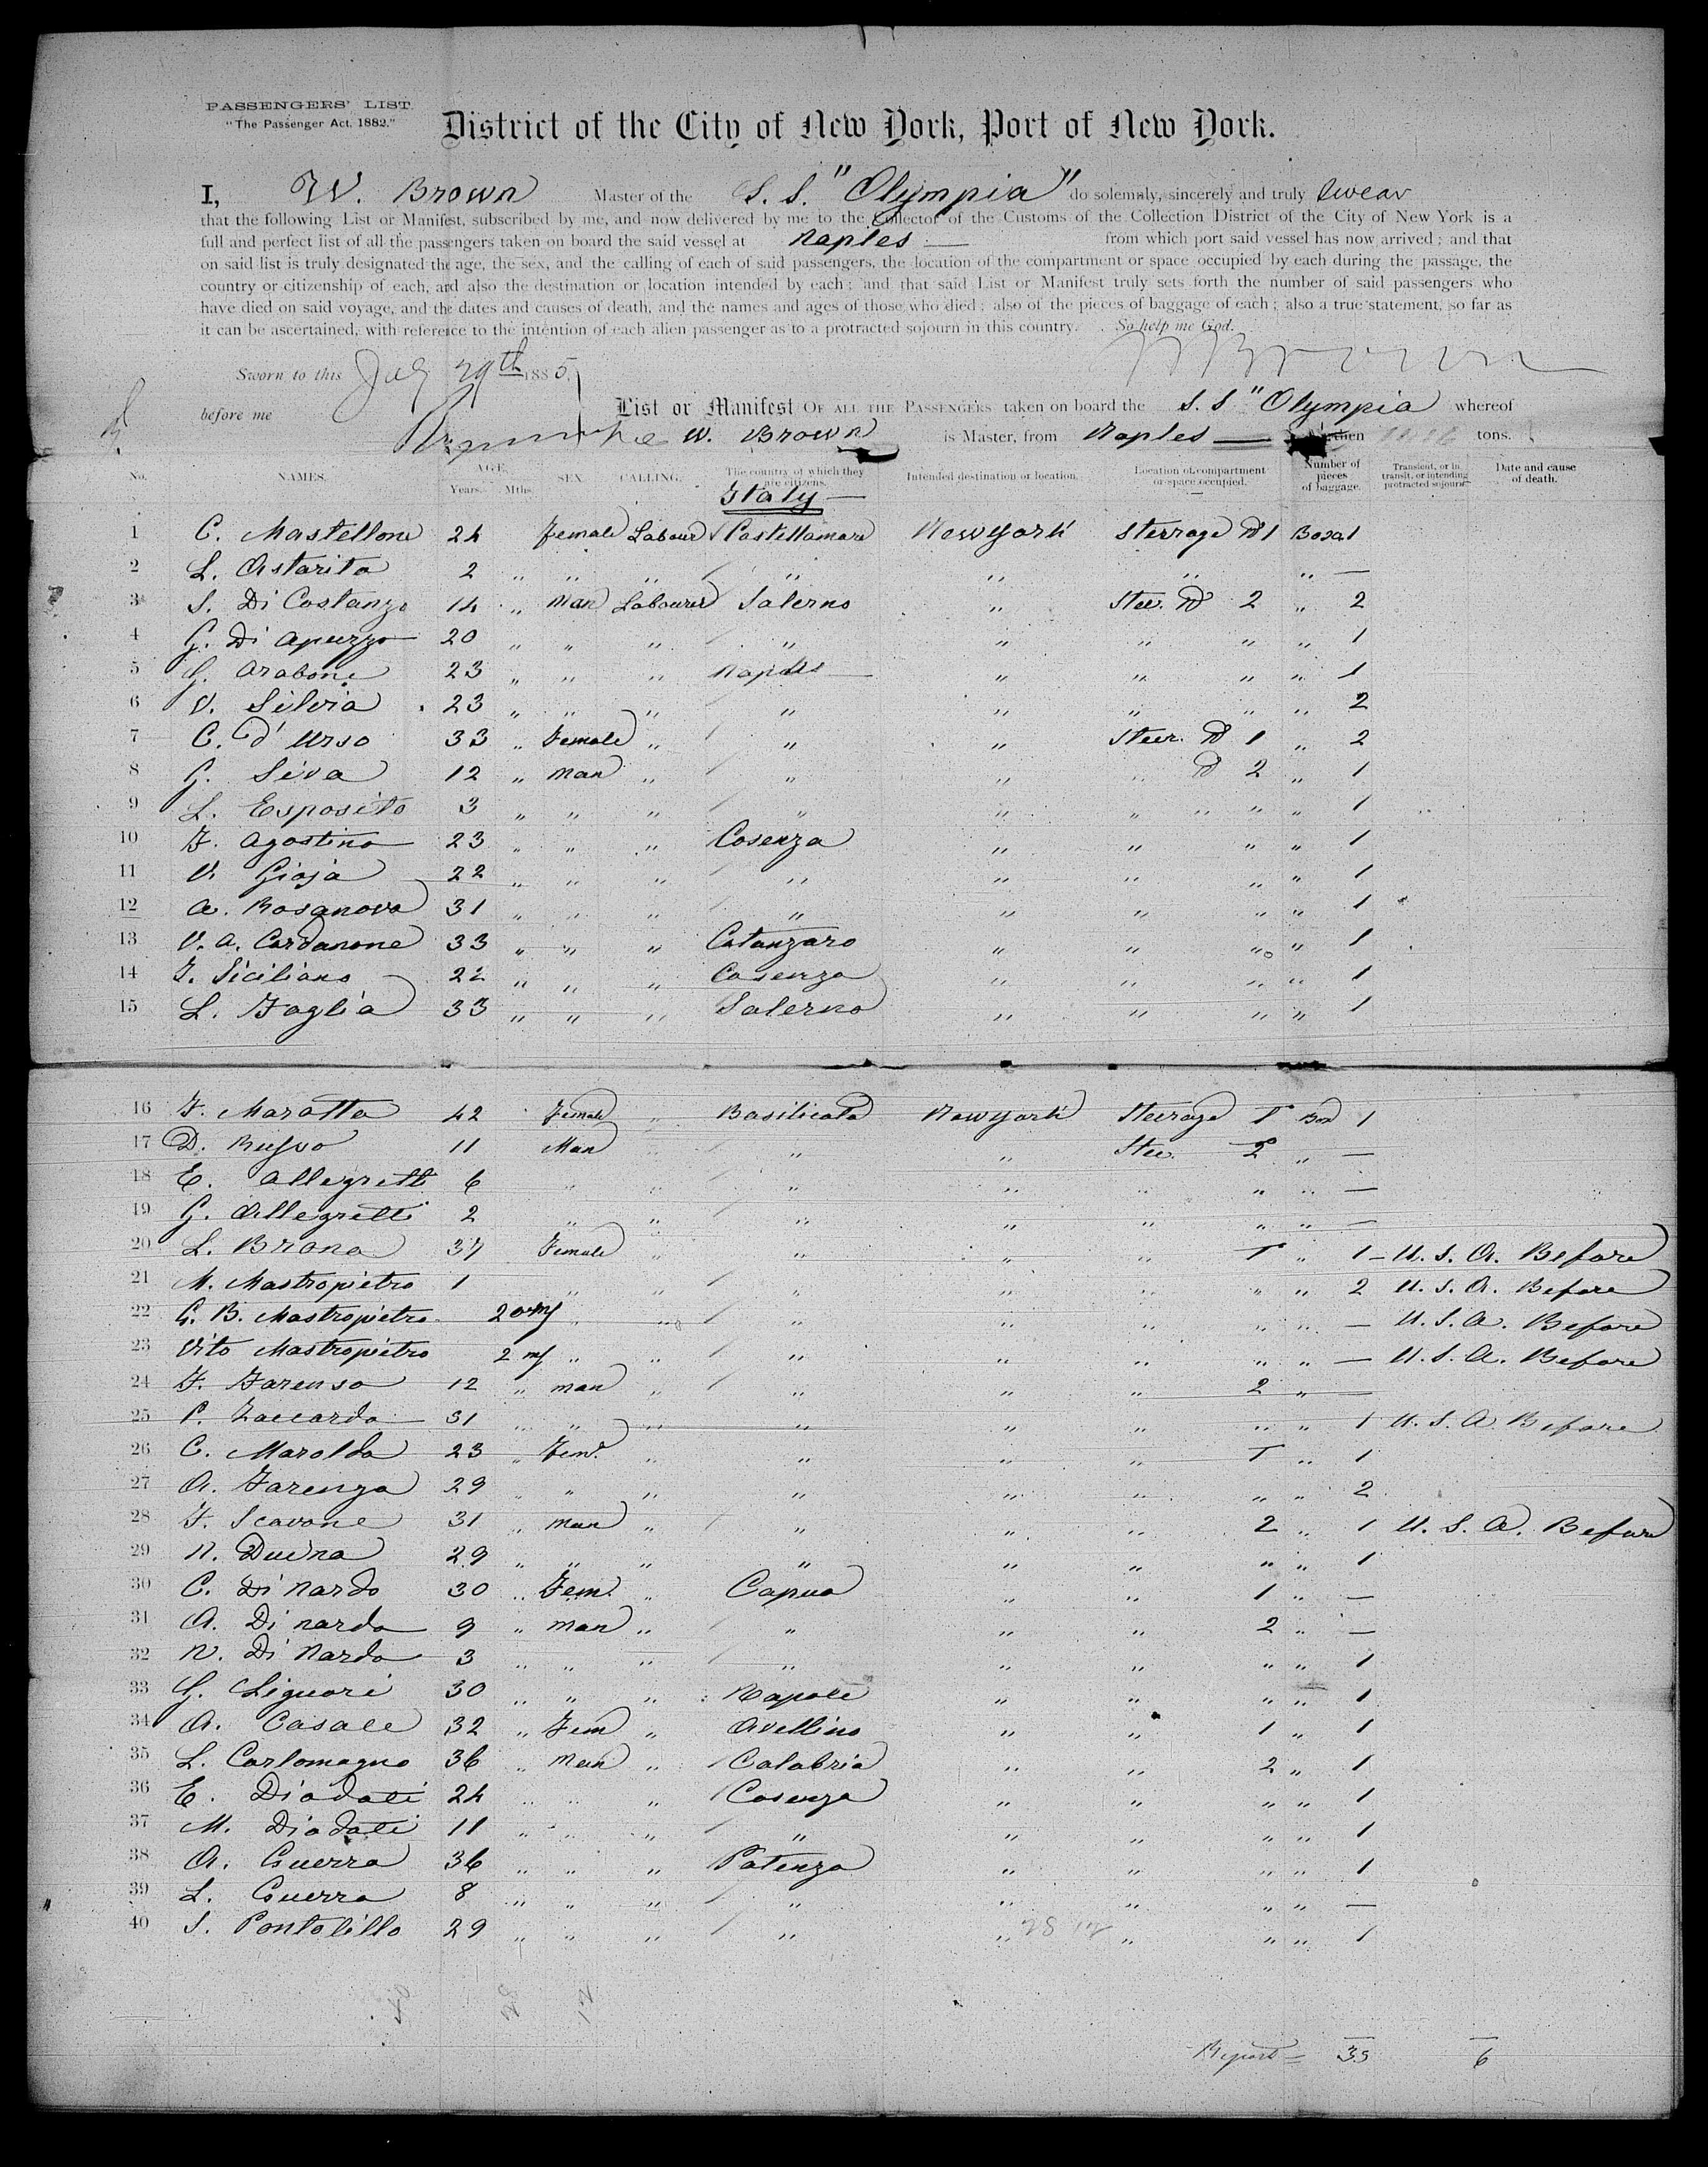 PASSENGERS' LIST.
"The Passenger Act, 1882."
District of the City of New York, Port of New York.
I, W. Brown Master of the S. S. "Olympia" do solemnly, sincerely and truly swear
that the following List or Manifest, subscribed by me, and now delivered by me to the Collector of the Customs of the Collection District of the City of New York is a
full and perfect list of all the passengers taken on board the said vessel at Naples — from which port said vessel has now arrived ; and that
on said list is truly designated the age, the sex, and the calling of each of said passengers, the location of the compartment or space occupied by each during the passage, the
country or citizenship of each, and also the destination or location intended by each ; and that said List or Manifest truly sets forth the number of said passengers who
have died on said voyage, and the dates and causes of death, and the names and ages of those who died ; also of the pieces of baggage of each ; also a true statement, so far as
it can be ascertained, with reference to the intention of each alien passenger as to a protracted sojourn in this country. So help me God.
W Brown
Sworn to this 29th 1885.
before me
List or Manifest OF ALL THE PASSENGERS taken on board the S. S "Olympia whereof
W. Brown is Master, from Naples — tons.
No. NAMES. AGE. Years. Mths. SEX. CALLING. The country of which they are citizens. Intended destination or location. Location of compartment or space occupied. Number of pieces of baggage. Transient, or in transit, or intending protracted sojourn. Date and cause of death.
Italy —
1 C. Mastellone 24 female Labour Castellamare New York Steerage No 1 1
2 L. Astarita 2 " " " " " " " —
3 S. Di Costanzo 14 " Man Labourer Salerno " Steer. No 2 " 2
4 G. Di Apuzzo 20 " " " " " " " " 1
5 G. Arabone 23 " " " Naples — " " " " 1
6 V. Silvia 23 " " " " " " " " 2
7 C. d'Urso 33 " Female " " " Steer. No 1 " 2
8 G. Siva 12 " man " " " " No 2 " 1
9 L. Esposito 3 " " " " " " " " " 1
10 F. Agostino 23 " " " Cosenza " " " " 1
11 V. Gioja 22 " " " " " " " " 1
12 A. Bosanova 31 " " " " " " " " 1
13 V. A. Cardamone 33 " " " Catanzaro " " " " 1
14 F. Siciliano 22 " " " Cosenza " " " " 1
15 L. Faglia 33 " " " Salerno " " " " 1
16 F. Maratta 42 Female " Basilicata New York Steerage 1 Box 1
17 D. Russo 11 Man " " " Stee. 2 " —
18 E. Allegretti 6 " " " " " " " —
19 G. Allegretti 2 " " " " " " " —
20 L. Brana 37 Female " " " " 1 " 1 — U. S. A. Before
21 M. Mastropietro 1 " " " " " " " 2 U. S. A. Before
22 G. B. Mastropietro " " " " " " " — U. S. A. Before
23 Vito Mastropietro 2 " " " " " " " — U. S. A. Before
24 F. Farenso 12 " man " " " " 2 " —
25 P. Zaccardo 31 " " " " " " " " 1 U. S. A. Before
26 C. Marolda 23 " Fem. " " " " 1 " 1
27 A. Farenza 29 " " " " " " " " 2
28 F. Scavone 31 " man " " " " 2 " 1 U. S. A. Before
29 N. 29 " " " " " " " " 1
30 C. Di Nardo 30 " Fem. " Capua " " 1 " —
31 A. Di Nardo 9 " man " " " " 2 " —
32 N. Di Nardo 3 " " " " " " " " 1
33 G. Liguori 30 " " " Napole " " " " 1
34 A. Casale 32 " Fem " Avellino " " 1 " 1
35 L. Carlomagno 36 " man " Calabria " " 2 " 1
36 E. Diodati 24 " " " Cosenza " " " " 1
37 M. Diodati 11 " " " " " " " " 1
38 A. Guerra 36 " " " Potenza " " " " 1
39 L. Guerra 8 " " " " " " " " —
40 S. Pontolillo 29 " " " " " " " " 1
28 12
28 12
6